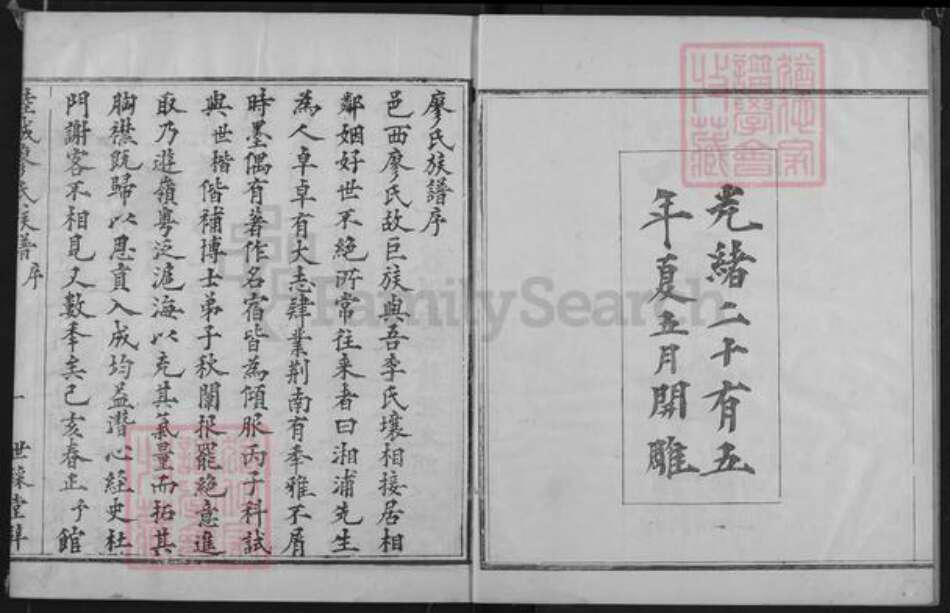 光緒二十有五
年夏五月開雕
廖氏族譜序
邑西廖氏故巨族與吾李氏壤相接居相
鄰姻好世不絕所常往来者曰湘浦先生
為人卓卓有大志肄業荆南有奉雅不屑
時墨偶有著作名宿皆為傾服丙子科試
與世楷偕補博士弟子秋闈报罷絕意進
取乃遊嶺粤泛滬海以充其氣量而拓其
胸襟既歸以恩貢入成均益潛心經史杜
門謝客不相見又數年矣己亥春正予館
廖氏族譜 序 一 世綵堂
FamilySearch